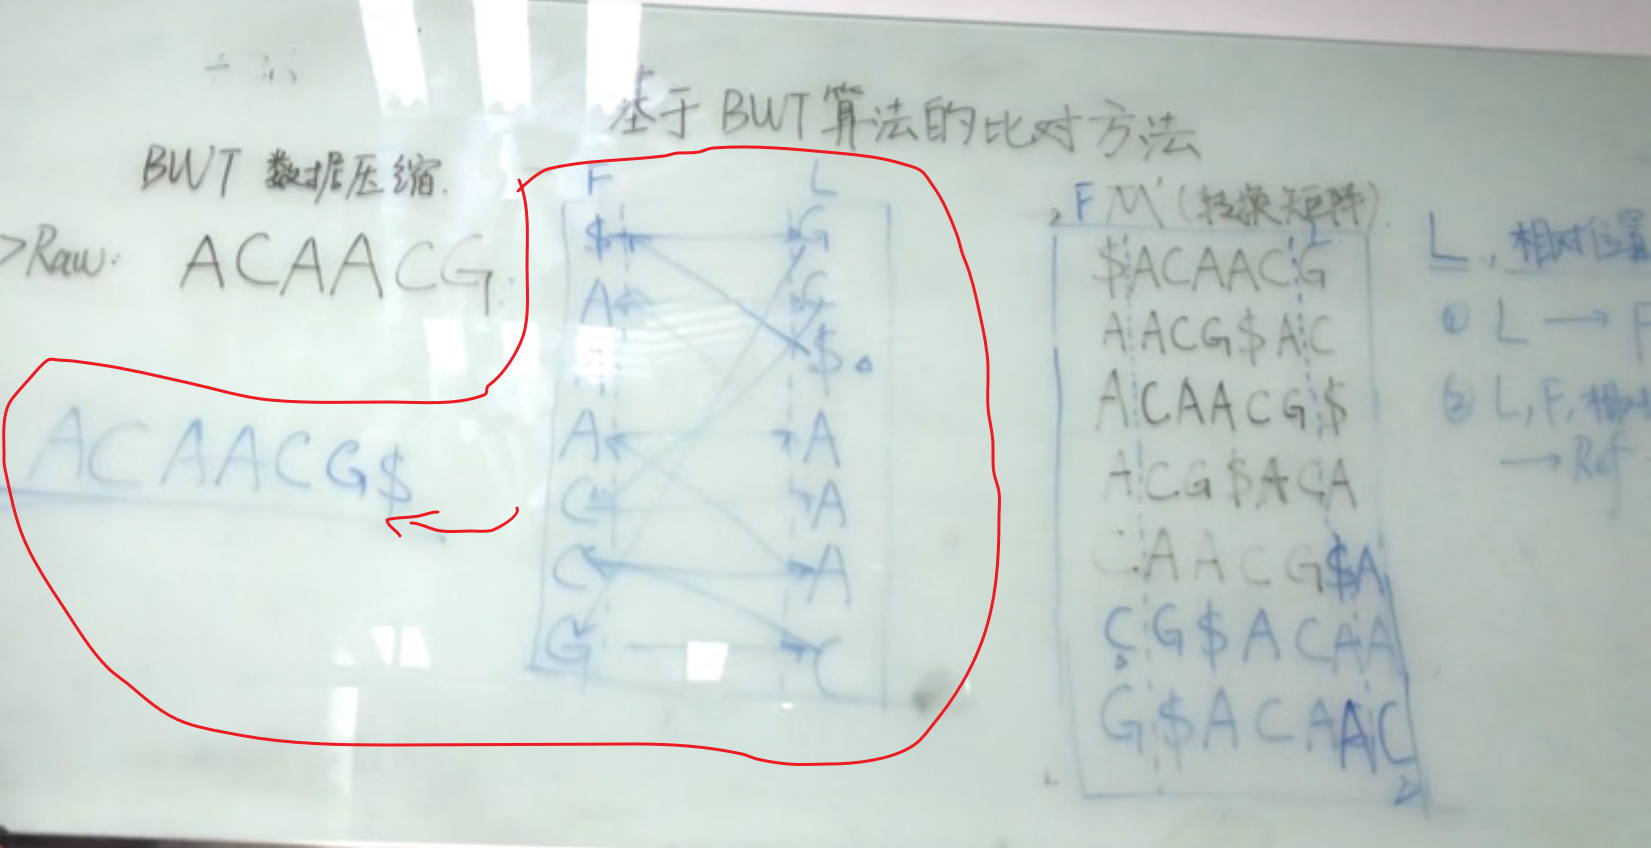 基于BWT算法的比对方法
BWT 数据压缩.
>Raw: ACAACG
ACAACG$
F L
$ G
A C
$
A A
C A
C A
G C
F M'(转换矩阵).
L
$ACAACG
AACG$AC
ACAACG$
ACG$ACA
CAACG$A
CG$ACAA
G$ACAAC
L, 相对位置
① L → F
② L, F, 相对
→ Ref